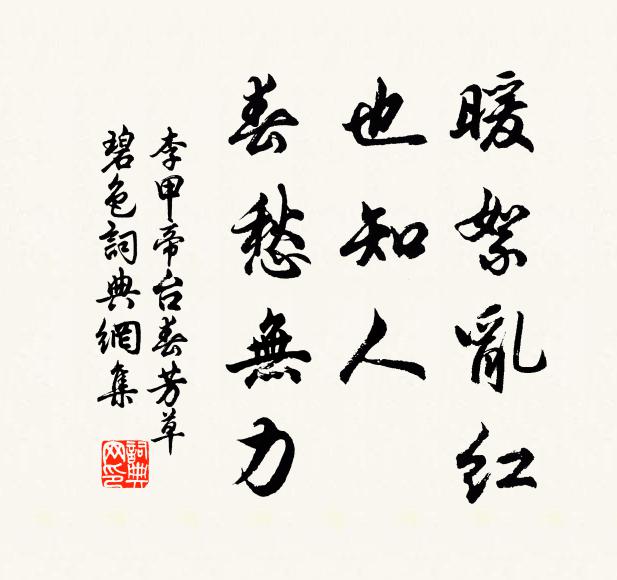 暖絮亂紅
也知人
春愁無力
李甲帝台春芳草
碧色詞典網集
詞典
网印